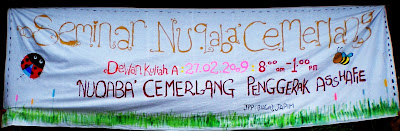 Seminar Nuqaba' Cemerlang
Dewan Kuliah A 27.02.2009 8.00 am - 1.00 pm
'NUQABA' CEMERLANG PENGGERAK ASSHAFIE'